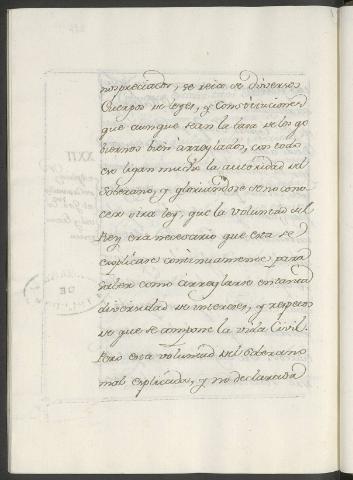 nospreciador, se reia de diversos
Cuerpos de leyes, y Constituciones
que aunque sean la basa de los go
biernos bien arreglados, con todo
eso ligan mucho la autoridad del
Soberano, y gloriandose de no cono
cer otra ley, que la voluntad del
Rey era necesario que esta se
explicase continuamente para
saber como arreglarse en tanta
diversidad de intereses, y respetos
de que se compone la vida Civil.
Pero esta voluntad del Soberano
mal explicada, y no declarada
XXII
DE